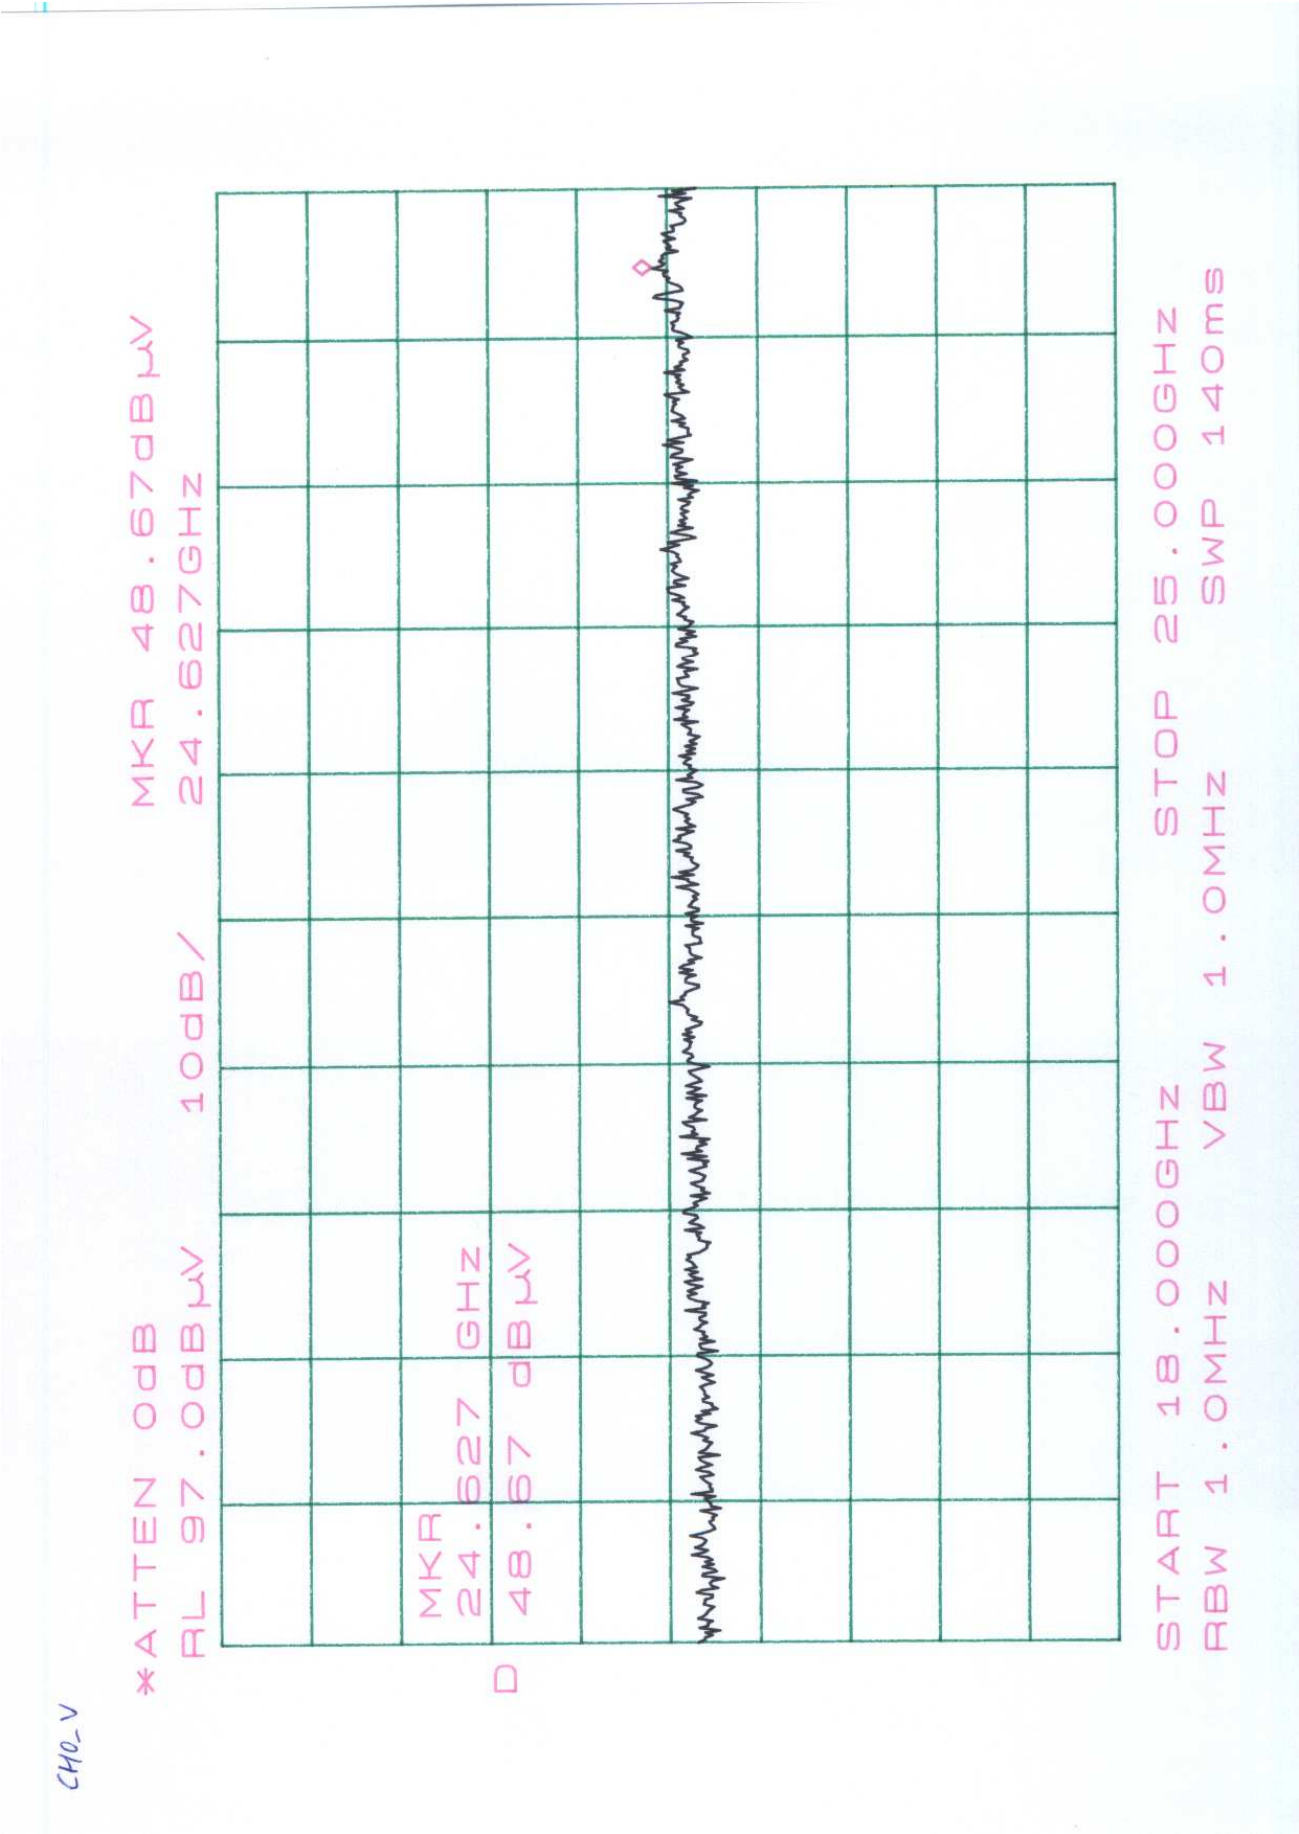 CH0_V
*ATTEN 0dB MKR 48.67dBµV
RL 97.0dBµV 10dB/ 24.627GHz
MKR
24.627 GHz
48.67 dBµV
D
START 18.000GHz STOP 25.000GHz
RBW 1.0MHz VBW 1.0MHz SWP 140ms